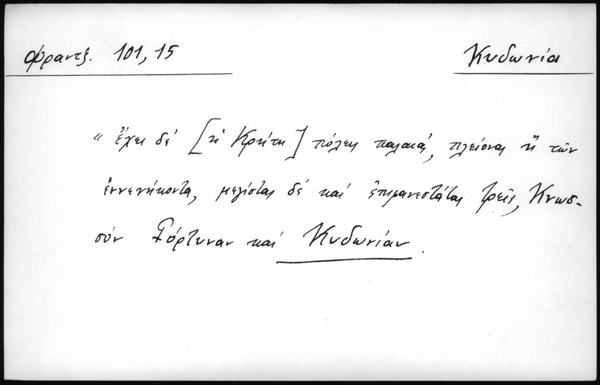 Φραντζ. 101,15 Κυδωνία
" ἔχει δέ [ἡ Κρήτη] πόλεις παλαιάς, πλείονας ἢ τῶν
ἐννενήκοντα, μεγίστας δέ καί ἐπιφανεστάτας τρεῖς, Κνωσ-
σόν Γόρτυναν καί Κυδωνίαν.